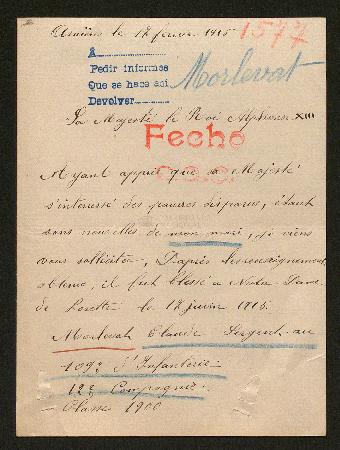 Amiens le 17 février 1915
1577
À
Pedir informes
Que se hace así
Devolver
Morlevat
Sa Majesté le Roi Alphonse XIII
Fecho
Ayant appris que sa Majesté
s'interessé des pauvres disparus, étant
sans nouvelles de mon mari, je viens
vous solliciter, D'après renseignement
obtenu, il fut blessé a Notre-Dame
de Lorette le 17 juin 1915.
Morlevat Claude Sergent au
109e d'Infanterie
12e Compagnie.
Classe 1900